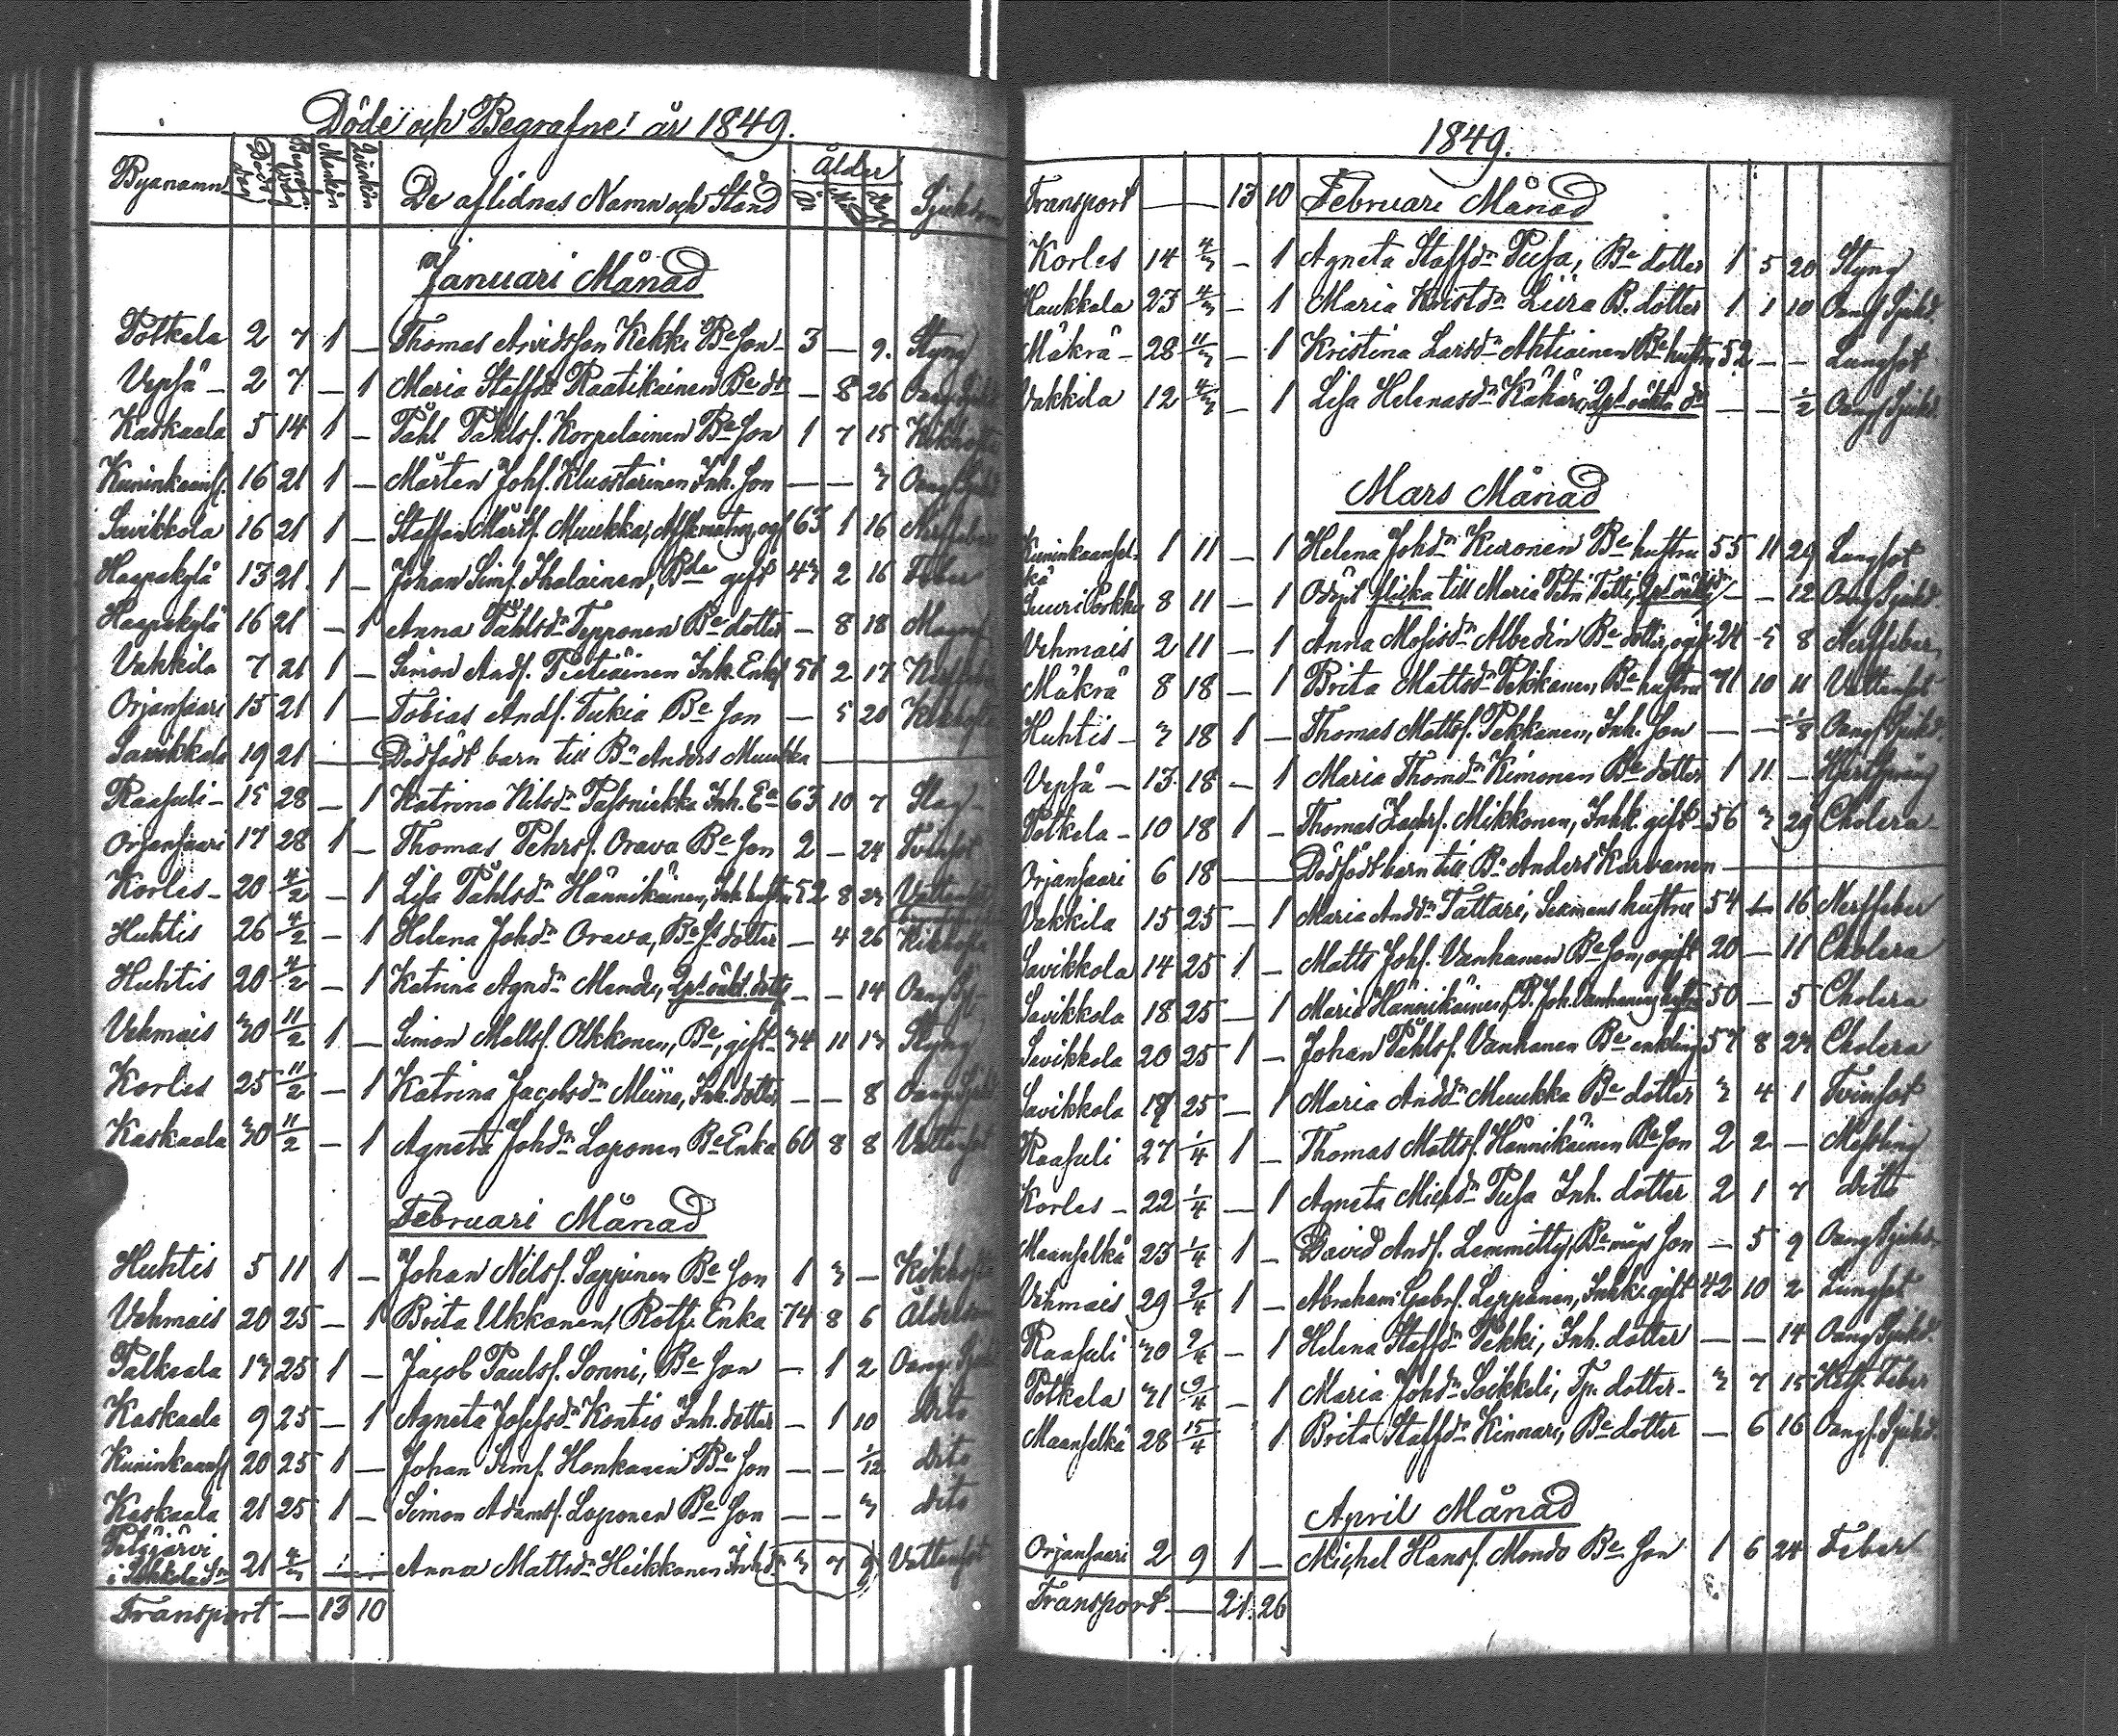 Döde och Begrafne år 1849.
Byanamn Döds dag Begrafn. dag Mankön Qvinkön De aflidnas Namn och Stånd Ålder År Mån Dag Sjukdom
Januari Månad
Pötkela 2 7 1 — Thomas Arvidsson Kekki Be Son 3 — 9. Styng
Vepsä — 2 7 — 1 Maria Staffdr Raatikainen Be dr — 8 26 Oang. Sjukd
Kaskaala 5 14 1 — Påhl Påhlsf. Korpelainen Be Son 1 7 15 Kikhosta
Kuninkaans. 16 21 1 — Mårten Johs. Kluustarinen Inh. Son — — 3 Oang Sjukd
Savikkola 16 21 1 — Staffan Mårtf. Muukka, 63 1 16 Nerffeber
Haapakylä 13 21. 1 — Johan Simf. Ihalainen, Bde gift 43 2 16 Feber
Haapakylä 16 21 — 1 Anna Påhlsdr Tepponen Be dotter — 8 18 Magref
Vakkila 7 21 1 — Simon Andf. Pietiäinen Inh. Enkl 51 2 17 Nerffeber
Orjansaari 15 21 1 — Tobias Andf. Tukia Be Son — 5 20 Kikhosta
Savikkola 19 21 — Dödfödt barn till Bn Anders Muukka —
Raasuli — 15 28 — 1 Katrina Nilsdr Passniekka Inh. Ea 63 10 7 Slag —
Orjansaari 17 28 1 — Thomas Pehrsf. Orava Be Son 2 — 24 Tvinsot
Korles — 20 4/2 — 1 Lisa Påhlsdr Hännikäinen, Inh hustru 52 8 23 Vattensot
Huhtis 26 4/2 — 1 Helena Johdr Orava, Be Ss dotter — 4 26 Kikhosta
Huhtis 20 4/2 — 1 Katrina Agndr Mondo, — — 14 Oang Sj —
Vehmais 30 11/2 1 — Simon Mattsf. Olkkonen, Be, gift — 34 11 13 Styng
Korles 25 11/2 — 1 Katrina Jacobsdr Miina, Inh. dotter — — 8 Oang. Sjukd
Kaskaala 30 11/2 — 1 Agneta Johdr Loponen Be Enka 60 8 8 Vattensot
Februari Månad
Huhtis 5 11 1 — Johan Nilsf. Sappinen Be Son 1 3 — Kikhosta
Vehmais 20 25 — 1 Brita Ukkonen, Rotf. Enka 74 8 6 Ålderdom
Palkeala 13 25 1 — Jacob Paulsf. Sonni, Be Son — 1 2 Oang. Sjukd
Kaskaala 9 25 — 1 Agneta Josefsdr Kontio Inh. dotter — 1 10 Dito
Kuninkaans 20 25 1 — Johan Simf. Honkanen Be Son — — 1/12 Dito
Kaskaala 21 25 1 — Simon Adamsf. Loponen Be Son — — 3 Dito
Petäjärvi
i Sakkola Sn 21 4/3 Anna Mattsdr Heikkonen Inh dr 3 7 9 Vattensot
Transport — 13 10
1849.
Transport — — 13 10 Februari Månad
Korles 14 4/3 — 1 Agneta Staffdr Pusa, Be dotter 1 5 20 Styng
Haukkala 23 4/3 — 1 Maria Kristdr Liira B. dotter 1 1 10 Oang Sjukd.
Mäkrä — 28 11/3 — 1 Kristina Larsdr Ahtiainen Be hustru 52 — — Lungsot
Vakkila 12 4/3 — 1 Lisa Helenasdr Kähäri, — — 1/2 Oang Sjukd.
Mars Månad
Kuninkaansel-
kä 1 11 — 1 Helena Johdr Kuronen Be hustru 55 11 29 Lungsot
Suuri Porkku 8 11 — 1 Odöpt flicka till Maria Petri Tatti, — — 12 Oang Sjukd.
Vehmais 2 11 — 1 Anna Mosisdr Albedin Be dotter, ogift 24 5 8 Nerffeber
Mäkrä 8 18 — 1 Brita Mattsdr Pekkanen, Be hustru 71 10 11 Vattensot
Huhtis — 3 18 1 — Thomas Mattsf. Pekkanen, Inh. Son — — 1/8 Oang Sjukd.
Vepsä — 13 18 — 1 Maria Thomdr Kimonen Be dotter 1 11 — Hjertsprång
Pötkela — 10 18 1 — Thomas Zachrf. Mikkonen, Inhk. gift — 56 3 29 Cholera —
Orjansaari 6 18 — Dödfödt barn till Bn Anders Karvanen —
Vakkila 15 25 — 1 Maria Anddr Tattari, hustru 54 — 16 Nerffeber
Savikkola 14 25 1 — Matts Johf. Vanhanen Be Son, ogift 20 — 11 Cholera
Savikkola 18 25 — 1 Maria Hännikäinen, B. Joh. Vanhanens hustru 50 — 5 Cholera
Savikkola 20 25 1 — Johan Påhlsf. Vanhanen Be enkling 57 8 23 Cholera
Savikkola 17 25 — 1 Maria Anddr Muukka Be dotter 3 4 1 Tvinsot
Raasuli 27 1/4 1 — Thomas Mattsf. Hännikäinen Be Son 2 2 — Messling
Korles — 22 1/4 — 1 Agneta Michdr Pusa Inh. dotter 2 1 7 Dito
Maanselkä 23 1/4 1 — David Andf. Lemmitty, Be mågs Son — 5 9 Oang Sjukd.
Vehmais 29 9/4 1 — Abraham Gabrf. Lepponen, Inhk. gift 42 10 2 Lungsot
Raasuli 30 9/4 — 1 Helena Staffdr Pekki, Inh. dotter — — 14 Oang Sjukd.
Pötkela 31 9/4 — 1 Maria Johdr Soikkeli, Tp. dotter — 3 7 15 Het. Feber
Maanselkä 28 15/4 1 Brita Staffdr Kinnari, Be dotter — 6 16 Oang. Sjukd.
April Månad
Orjansaari 2 9 1 — Michel Hansf. Mondo Be Son 1 6 24 Feber
Transport — 21. 26